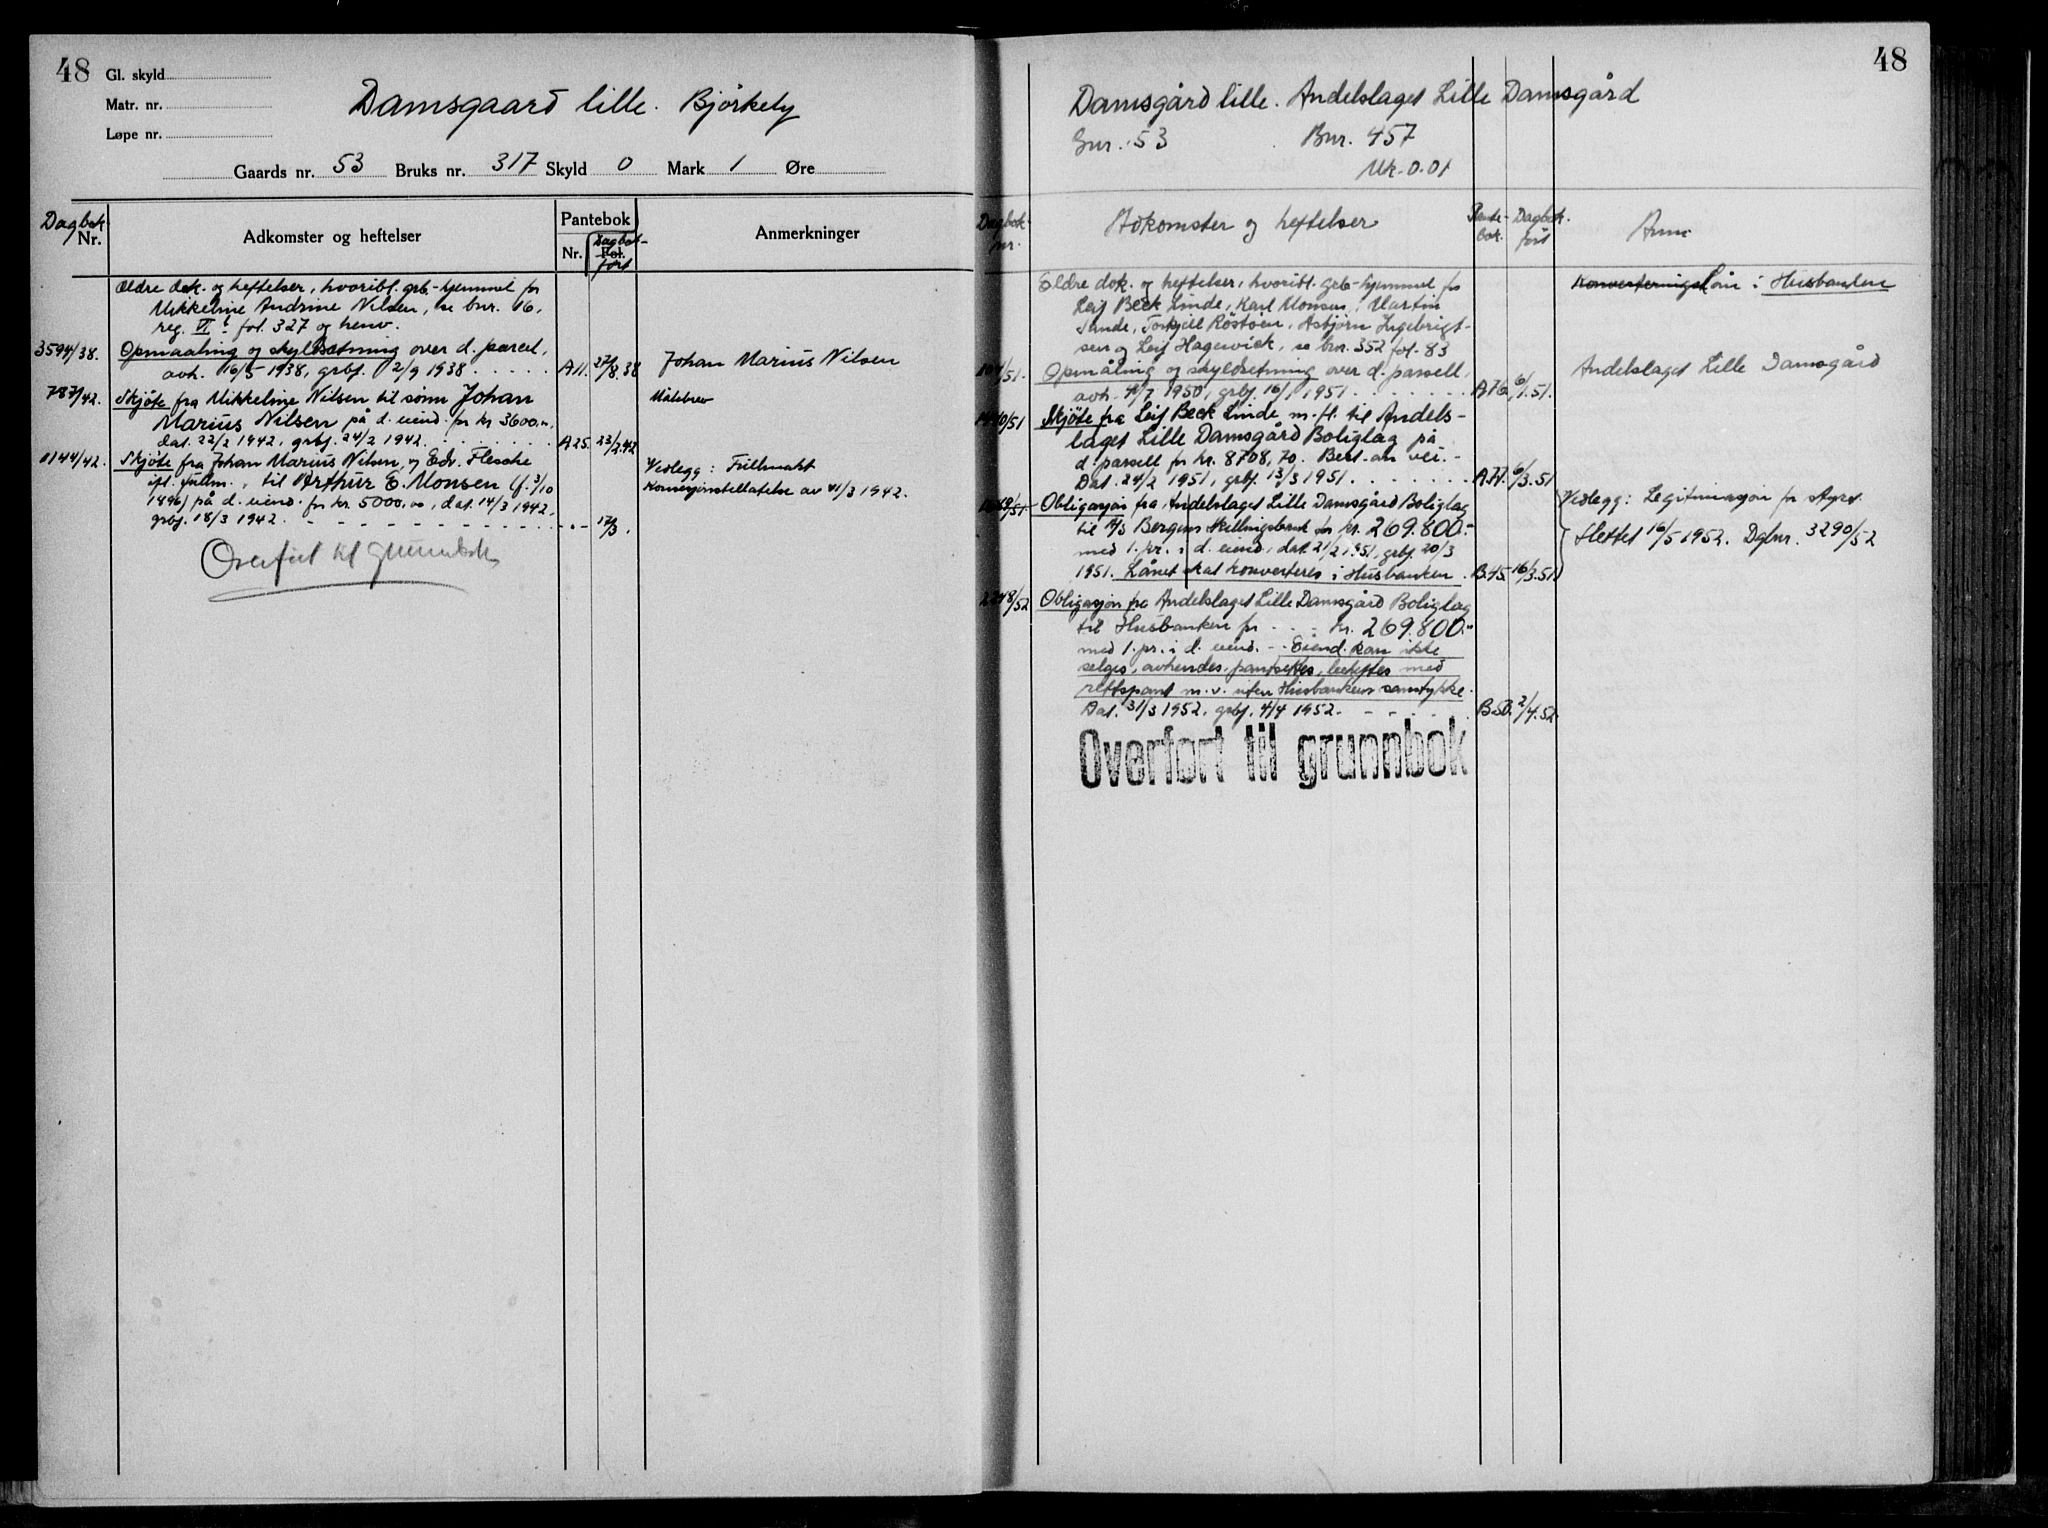 48
Gl. skyld
Matr. nr.
Løpe nr.
Damsgaard lille. Bjørkely
Gaards nr. 53 Bruks nr. 317 Skyld 0 Mark 1 Øre
Dagbok Nr.
Adkomster og heftelser
Pantebok
Nr. Dagbok-
Fol.
ført
Anmerkninger
Ældre dok. og heftelser, hvoribl. grb.-hjemmel for
Mikkeline Andrine Nilsen, se bnr. 16,
reg. VI b fol. 327 og henv.
3594/38. Opmaaling og skyldsætning over d. parcel,
avh. 16/5 1938, grbf. 2/9 1938 . . . . . A11. 27/8.38 Johan Marius Nilsen
787/42. Skjøte fra Mikkeline Nilsen til sønn Johan Målebrev
Marius Nilsen på d. eiend. for kr 3600,00,
dat. 22/2 1942, grbf. 24/2 1942 . . . . . . . A25. 23/2.42
1144/42. Skjøte fra Johan Marius Nilsen, og Edv. Flesche Vedlegg: Fullmakt
ifl. fullm., til Arthur E. Monsen (f. 3/10 Konsesjonstillatelse av 11/3 1942.
1896) på d. eiend. for kr 5000,00, dat. 14/3 1942,
grbf. 18/3 1942. - - - - - - - - - - - - 17/3.
Overført til grunnbok
48
Damsgård lille. Andelslaget Lille Damsgård
Gnr. 53 Bnr. 457
Mk. 0.01
Dagbok nr.
Adkomster og heftelser
Pante-
bok.
Dagbok.
ført
Anm.
Eldre dok. og heftelser, hvoribl. grb-hjemmel for Konverteringslån i Husbanken
Leif Beck Linde, Karl Monsen, Martin
Sande, Torkjell Røstøen, Asbjørn Ingebrigt-
sen og Leif Hagewick, se bnr. 352 fol. 83
104/51. Opmåling og skyldsetning over d. parsell, Andelslaget Lille Damsgård
avh. 4/7 1950, grbf. 16/1 1951. . . . . . . . A76. 6/1.51.
/51 Skjøte fra Leif Beck Linde m. fl. til Andels-
laget Lille Damsgård Boliglag på
d. parsell for kr. 8708,70. Best. om vei. -
Dat. 24/2 1951, grbf. 13/3 1951. . . . . . . . A77. 6/3.51
/51. Obligasjon fra Andelslaget Lille Damsgård Boliglag Vedlegg: Legitimasjon for styret.
til A/S Bergens Skillingsbank for kr. 269.800.- Slettet 16/5 1952. Dgbnr. 3290/52
med 1. pr. i d. eiend., dat. 21/2 1951, grbf. 20/3
1951. Lånet skal konverteres i Husbanken. B.45. 16/3.51
2248/52 Obligasjon fra Andelslaget Lille Damsgård Boliglag
til Husbanken for - - - kr. 269.800.-
med 1. pr. i d. eiend. - Eiend. kan ikke
selges, avhendes, pantsettes, beheftes med
rettspant m. v. uten Husbankens samtykke.
Dat. 31/3 1952, grbf. 4/4 1952. - - - - - B50. 2/4.52.
Overført til grunnbok